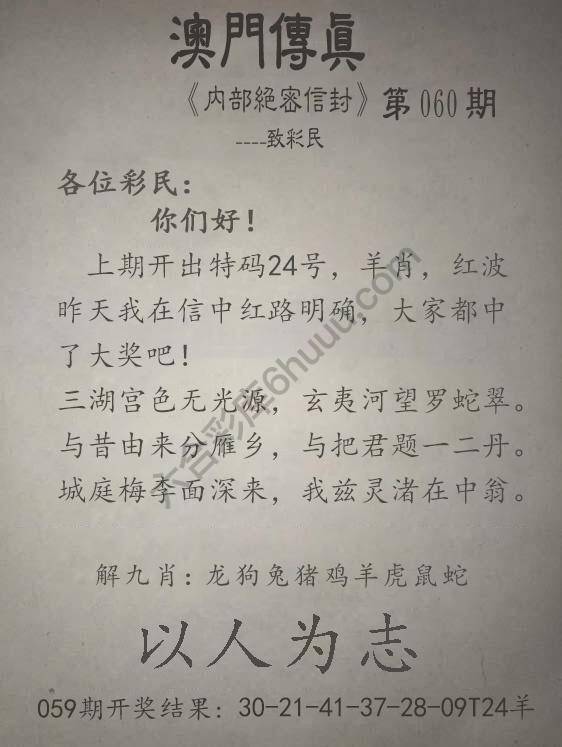 澳門傳真
《内部絕密信封》第060期
----致彩民
各位彩民：
你们好！
上期开出特码24号，羊肖，红波
昨天我在信中红路明确，大家都中
了大奖吧！
三湖宫色无光源，玄夷河望罗蛇翠。
与昔由来分雁乡，与把君题一二丹。
城庭梅李面深来，我兹灵渚在中翁。
六合彩库6huuu.com
解九肖：龙狗兔猪鸡羊虎鼠蛇
以人为志
059期开奖结果：30-21-41-37-28-09T24羊